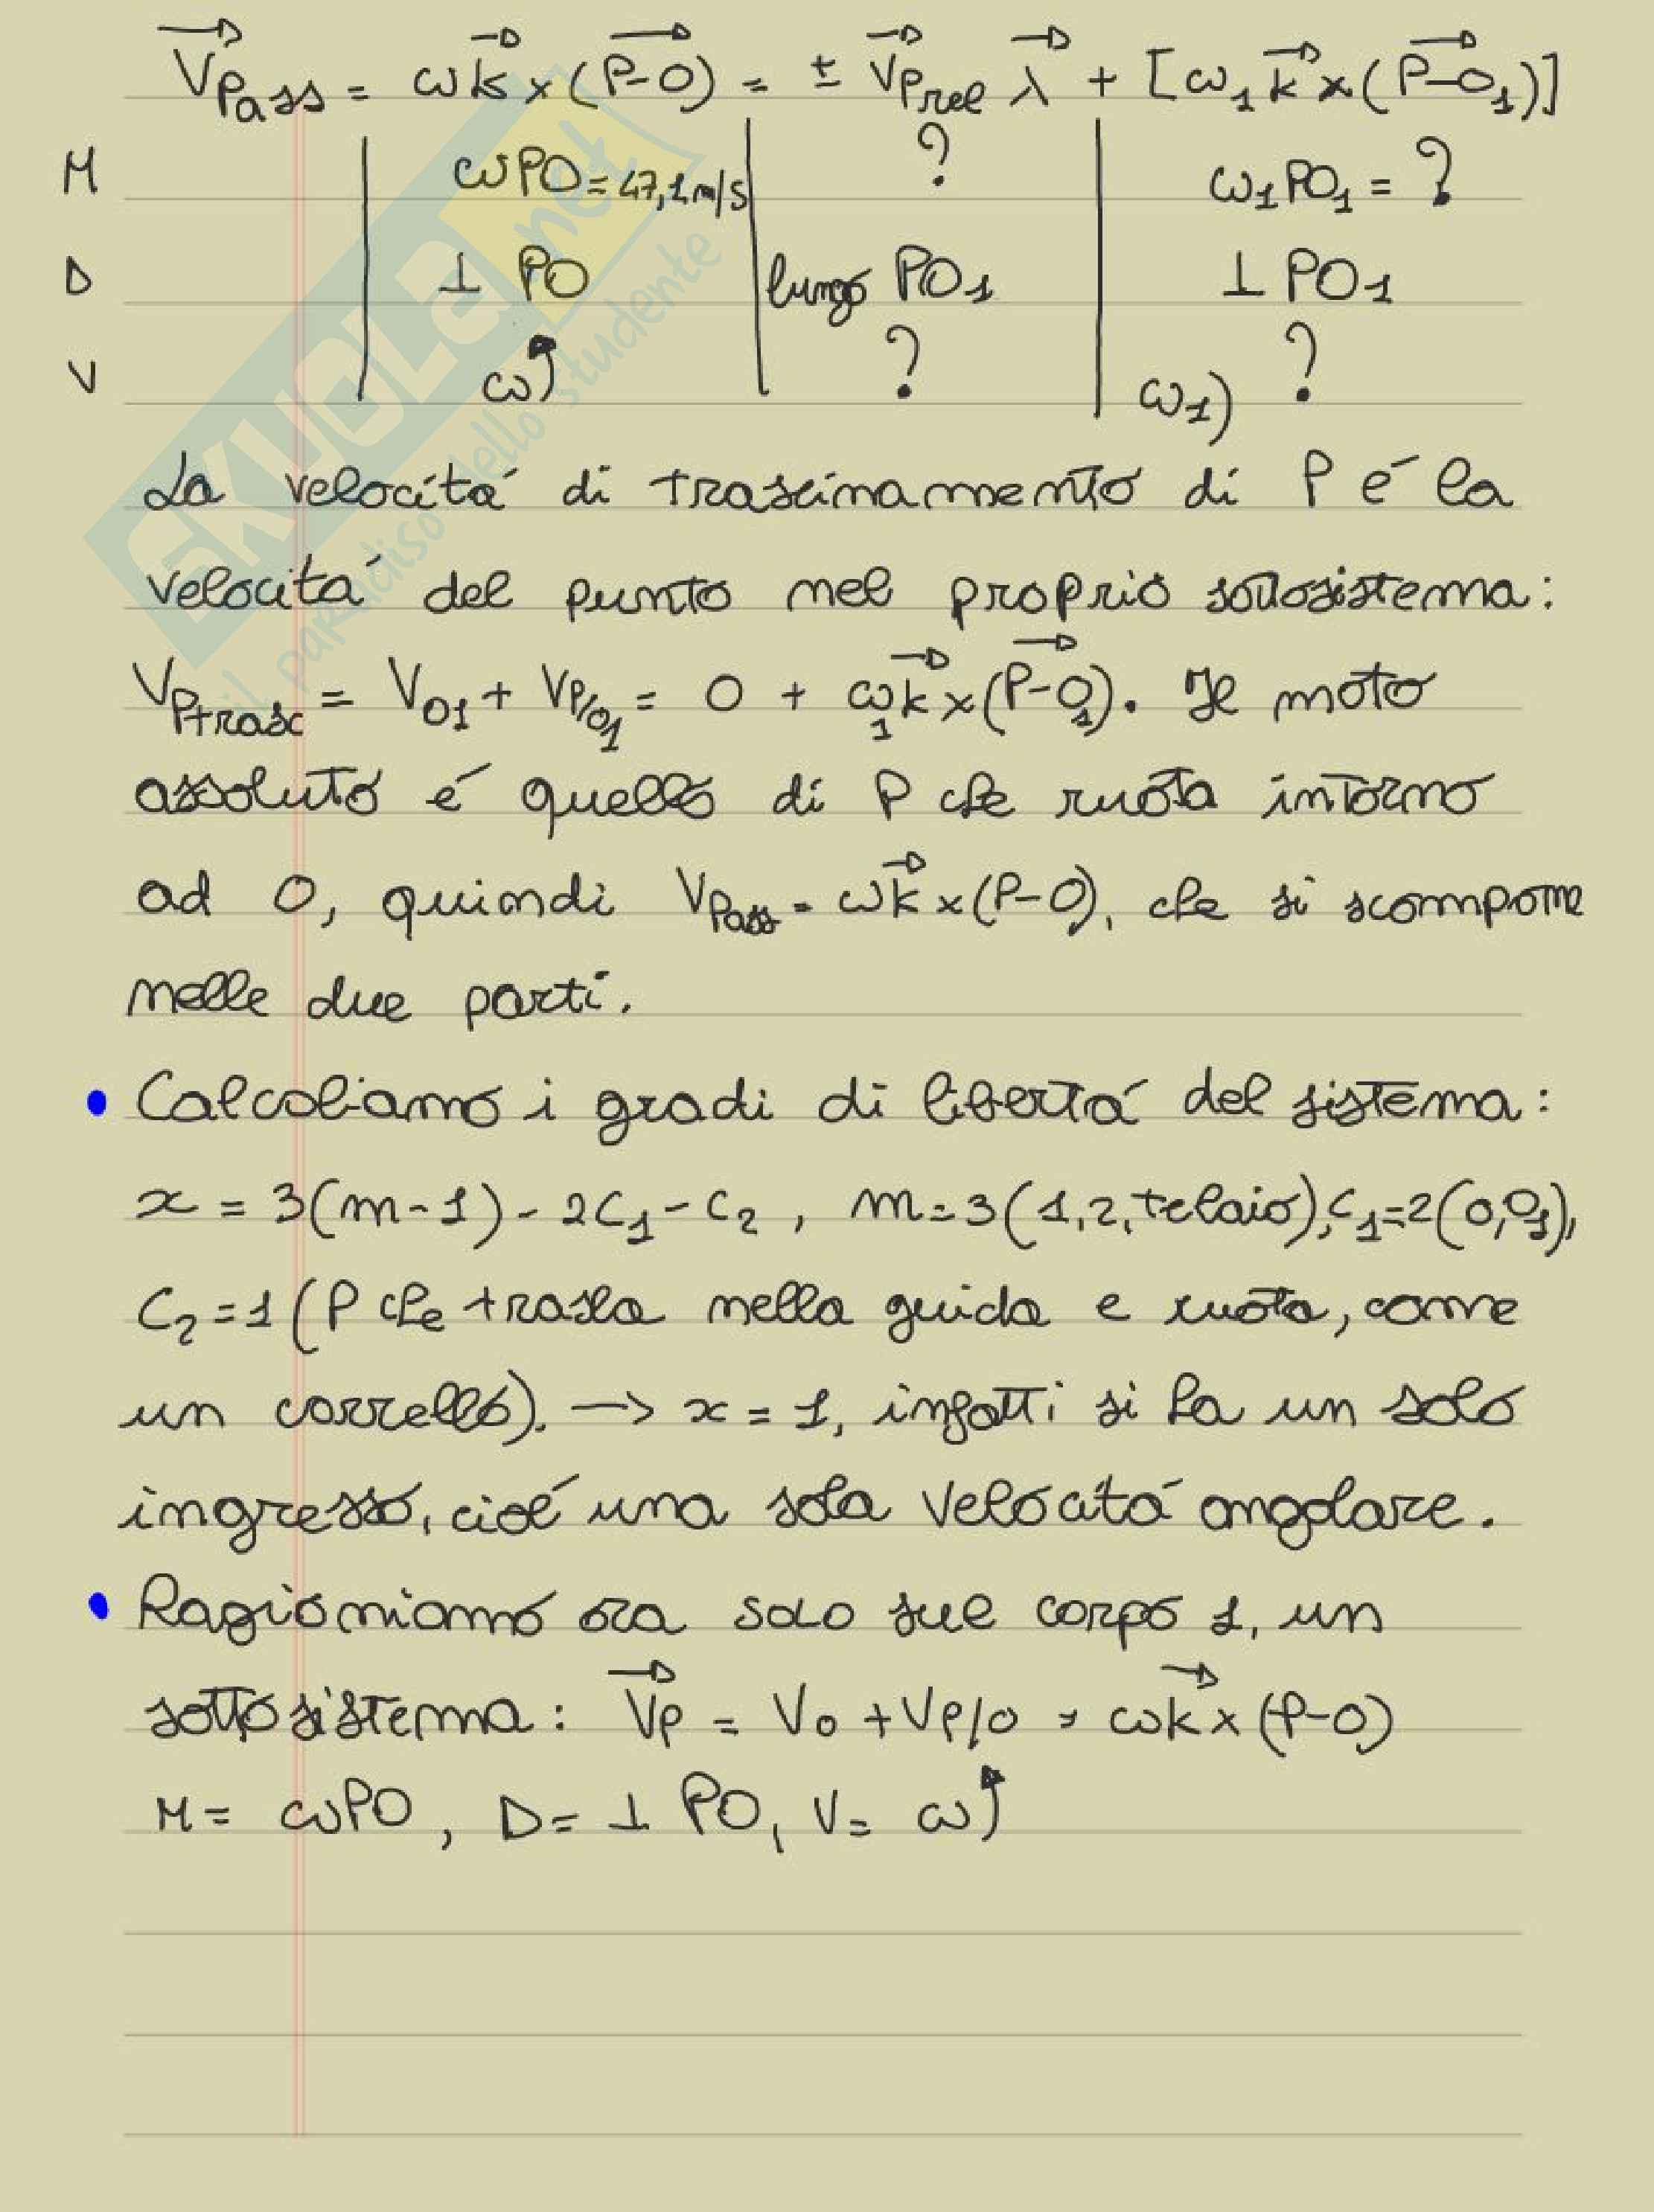 V⃗Pass = ωk⃗ x (P-O)⃗ = ± V⃗Prel λ⃗ + [ω1 k⃗ x (P-O1)⃗]
M | ωPO = 47,1 m/s | ? | ω1PO1 = ?
D | ⊥ PO | lungo PO1 | ⊥ PO1
V | ω | ? | ω1) ?
La velocitá di trascinamento di P é la
velocitá del punto nel proprio sottosistema:
VPtrasc = VO1 + VP/O1 = 0 + ω1k⃗ x (P-O1)⃗. Il moto
assoluto é quello di P che ruota intorno
ad O, quindi VPass = ωk⃗ x (P-O), che si scompone
nelle due parti.
• Calcoliamo i gradi di libertá del sistema:
x = 3(m-1) - 2C1 - C2, m=3 (1,2,telaio), C1=2(O,O1),
C2=1 (P che trasla nella guida e ruota, come
un carrello). → x = 1, infatti si ha un solo
ingresso, cioé una sola velocitá angolare.
• Ragioniamo ora solo sul corpo 1, un
sottosistema: V⃗P = VO + VP/O = ωk⃗ x (P-O)
M = ωPO, D = ⊥ PO, V = ω
SKUOLA.net
il paradiso dello studente